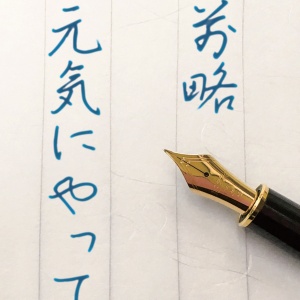 前略
元気にやって